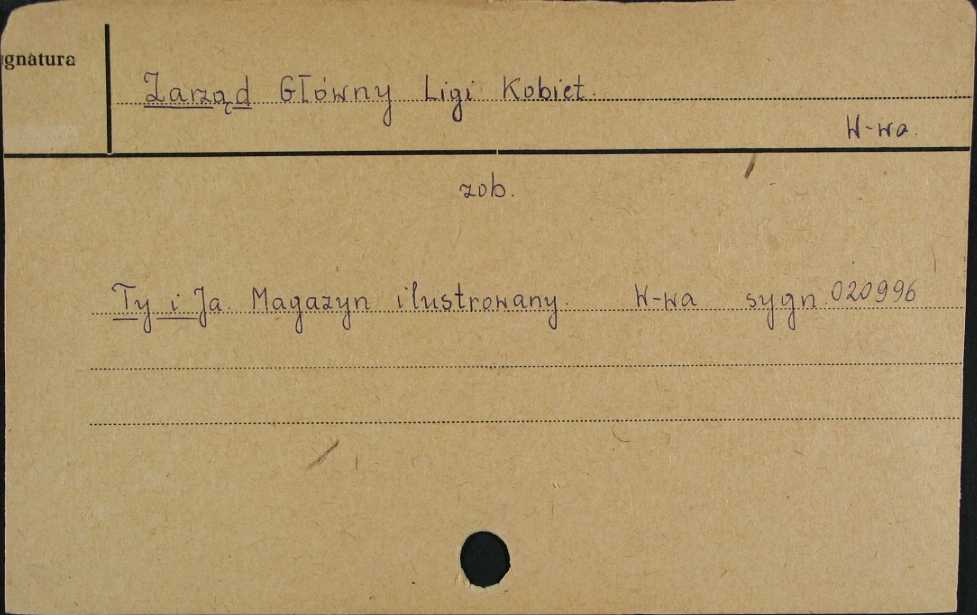 gnatura
Zarząd Główny Ligi Kobiet.
W-wa.
zob.
Ty i Ja. Magazyn ilustrowany. W-wa sygn. 020996